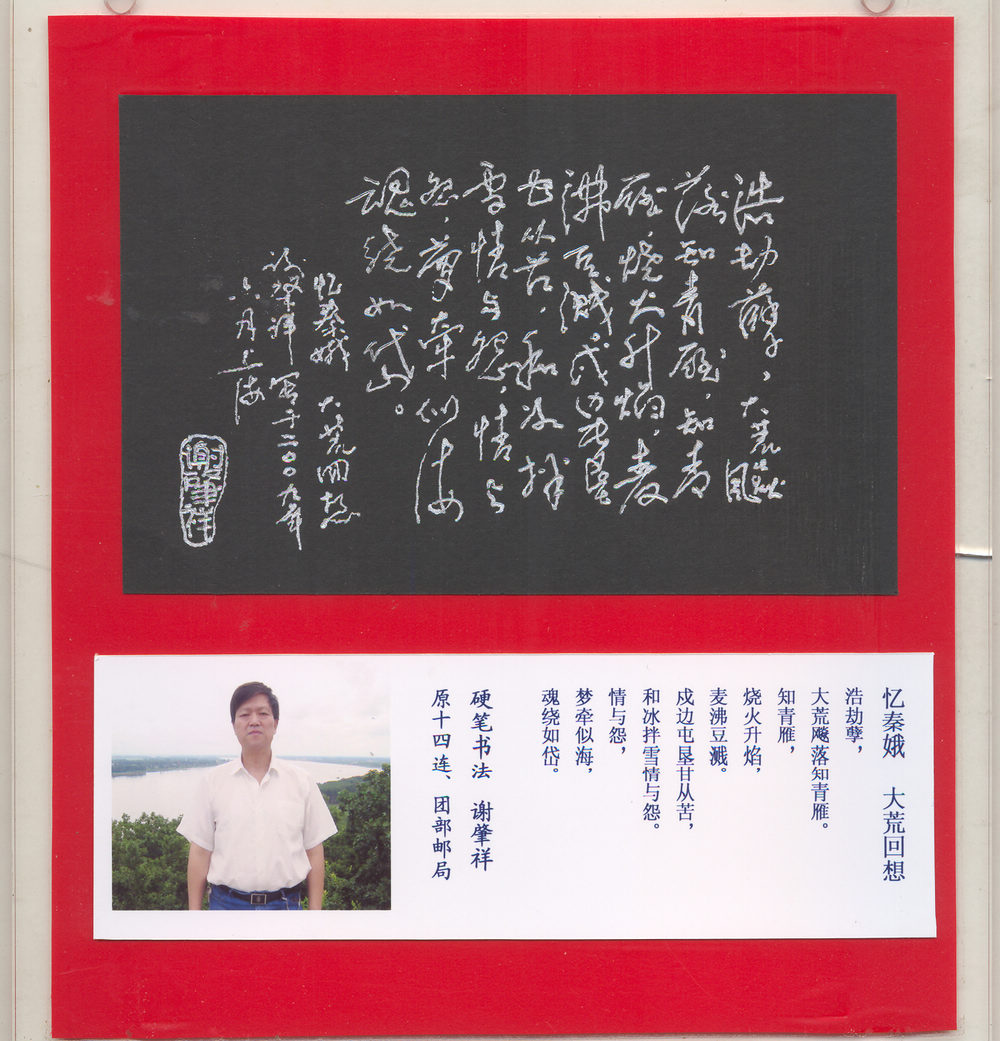 浩劫孽，大荒飚
落知青雁，知青
雁，烧火升焰，麦
沸豆溅。戍边屯垦
甘从苦，和冰拌
雪情与怨，情与
怨，梦牵似海
魂绕如岱。
忆秦娥 大荒回想
谢肇祥 写于二〇〇九年
六月上海
谢肇祥
忆秦娥 大荒回想
浩劫孽，
大荒飚落知青雁。
知青雁，
烧火升焰，
麦沸豆溅。
戍边屯垦甘从苦，
和冰拌雪情与怨。
情与怨，
梦牵似海，
魂绕如岱。
硬笔书法 谢肇祥
原十四连、团部邮局